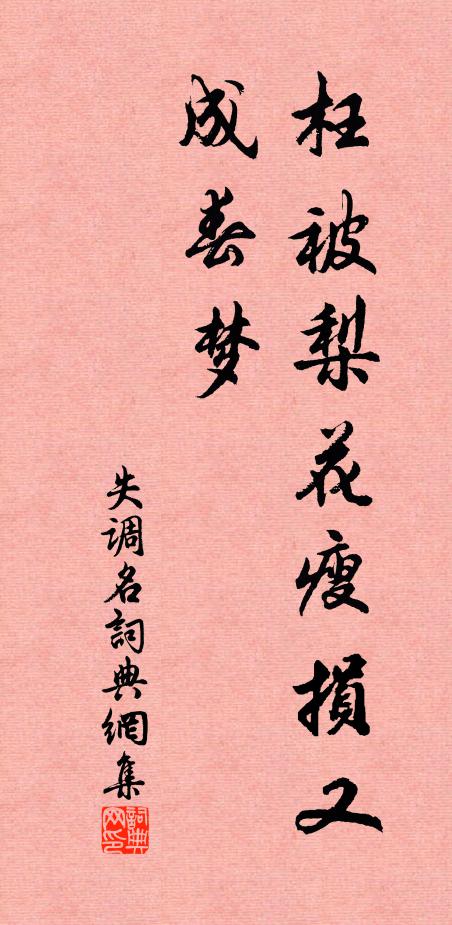 枉被梨花瘦损又
成春梦
失调名詞典網集
詞典网印